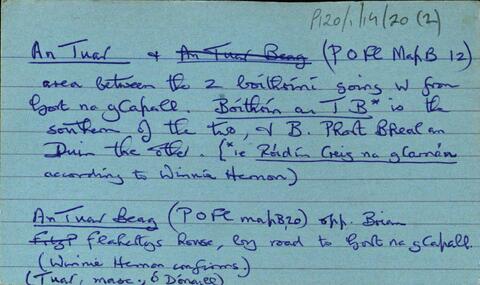 P120/1/14/20 (2)
An Tuar & An Tuar Beag (P O Fl Map B 12)
area between the 2 bóithríní going W from
Gort na gCapall. Bóithrín an T B* is the
southern of the two, & B. Phort Bhéal an
Dúin the other. (*ie Róidín Creig na gCarnán
according to Winnie Hernon)
An Tuar Beag (P O Fl map B, 20) opp. Brian
Flahertys house, by road to Gort na gCapall.
(Winnie Hernon confirms.)
(Tuar, masc., Ó Dónaill)